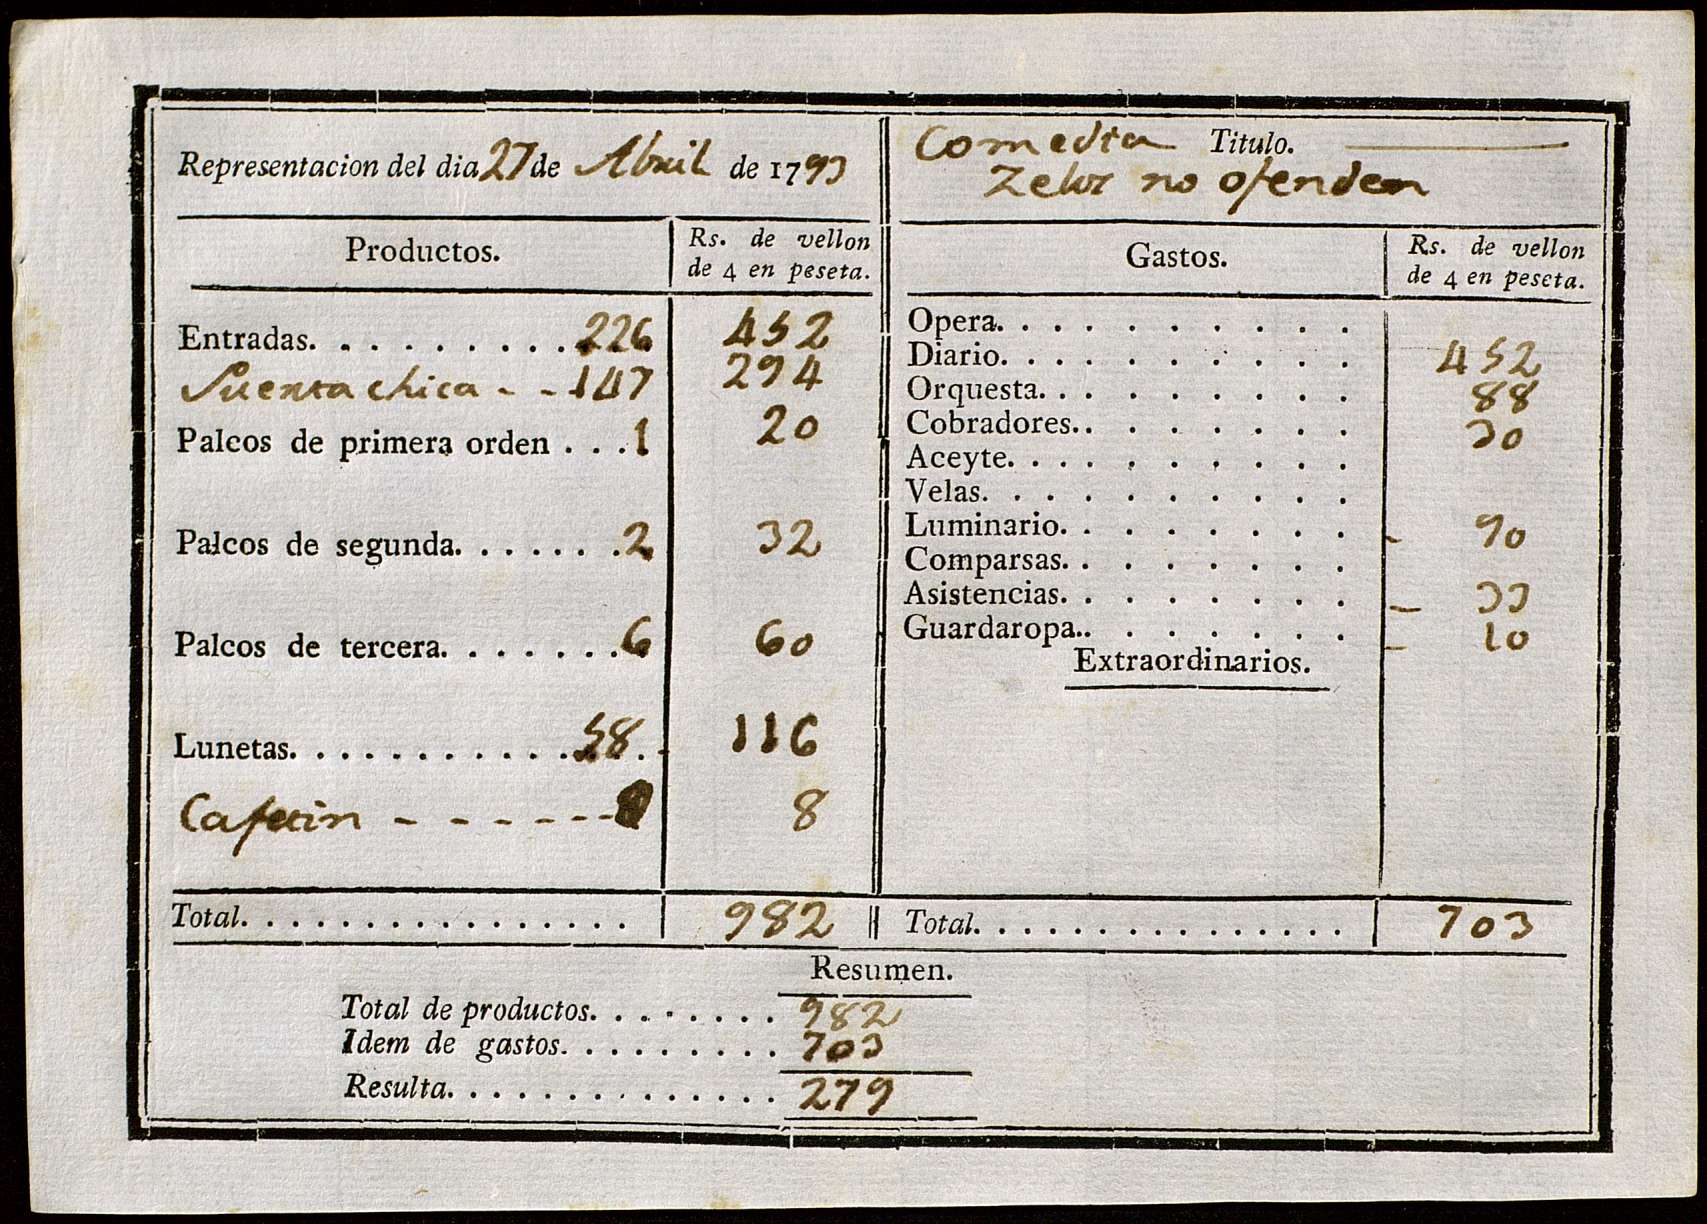 Representacion del dia 27 de Abril de 1793
Comedia Titulo.
Zelos no ofenden
Productos.
Rs. de vellon
de 4 en peseta.
Entradas. . . . . . . . . . 226 452
Puerta chica - - 147 294
Palcos de primera orden . . . 1 20
Palcos de segunda. . . . . . . 2 32
Palcos de tercera. . . . . . . . 6 60
Lunetas. . . . . . . . . . . . 58 116
Cafetin - - - - - - 8
Total. . . . . . . . . . . . . . . . 982
Gastos.
Rs. de vellon
de 4 en peseta.
Opera. . . . . . . . . .
Diario. . . . . . . . . . 452
Orquesta. . . . . . . . . 88
Cobradores. . . . . . . . 30
Aceyte. . . . . . . . . .
Velas. . . . . . . . . .
Luminario. . . . . . . . - 90
Comparsas. . . . . . . .
Asistencias. . . . . . . . - 33
Guardaropa. . . . . . . . - 10
Extraordinarios.
Total. . . . . . . . . . . . . . . 703
Resumen.
Total de productos. . . . . . . . 982
Idem de gastos. . . . . . . . . 703
Resulta. . . . . . . . . . . . . . 279